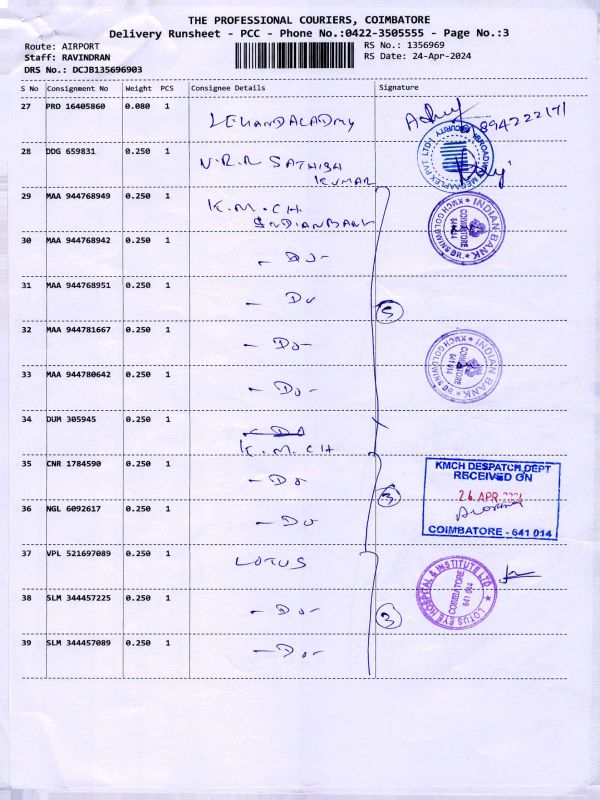 THE PROFESSIONAL COURIERS, COIMBATORE
Delivery Runsheet - PCC - Phone No.:0422-3505555 - Page No.:3
Route: AIRPORT
Staff: RAVINDRAN
DRS No.: DCJB135696903
RS No.: 1356969
RS Date: 24-Apr-2024
S No Consignment No Weight PCS Consignee Details Signature
27 PRO 16405860 0.080 1
894222171
28 DDG 659831 0.250 1 V.R.R SATHISH
KUMAR
29 MAA 944768949 0.250 1 K.M.CH
INDIANBANK
INDIAN BANK
KMCH GOLDWINS BR.
COIMBATORE
641 014
30 MAA 944768942 0.250 1 - Do -
31 MAA 944768951 0.250 1 - Do
5
32 MAA 944781667 0.250 1 - Do -
INDIAN BANK
KMCH GOLDWINS BR.
COIMBATORE
641 014
33 MAA 944780642 0.250 1 - Do -
34 DUM 305945 0.250 1 - Do
K.M.CH
35 CNR 1784590 0.250 1 - Do
3
KMCH DESPATCH DEPT
RECEIVED ON
APR
COIMBATORE - 641 014
36 NGL 6092617 0.250 1 - Do
37 VPL 521697089 0.250 1 LOTUS
LOTUS EYE HOSPITAL & INSTITUTE LTD
COIMBATORE
641 014
38 SLM 344457225 0.250 1 - Do -
3
39 SLM 344457089 0.250 1 - Do -